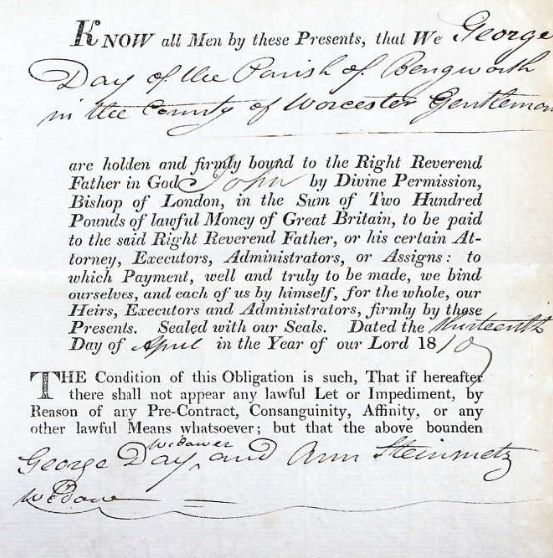 KNOW all Men by these Presents, that We George
Day of the Parish of Bengworth
in the County of Worcester Gentleman
are holden and firmly bound to the Right Reverend
Father in God John by Divine Permission,
Bishop of London, in the Sum of Two Hundred
Pounds of lawful Money of Great Britain, to be paid
to the said Right Reverend Father, or his certain At-
torney, Executors, Administrators, or Assigns: to
which Payment, well and truly to be made, we bind
ourselves, and each of us by himself, for the whole, our
Heirs, Executors and Administrators, firmly by these
Presents. Sealed with our Seals. Dated the thirteenth
Day of April in the Year of our Lord 1810
THE Condition of this Obligation is such, That if hereafter
there shall not appear any lawful Let or Impediment, by
Reason of any Pre-Contract, Consanguinity, Affinity, or any
other lawful Means whatsoever; but that the above bounden
widower
George Day, and Ann Steinmetz
Widow